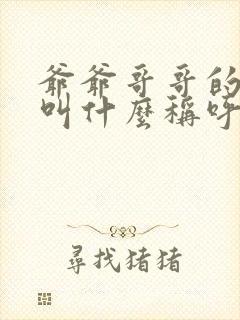 爺爺哥哥的
叫什麼稱呼
尋找猪猪